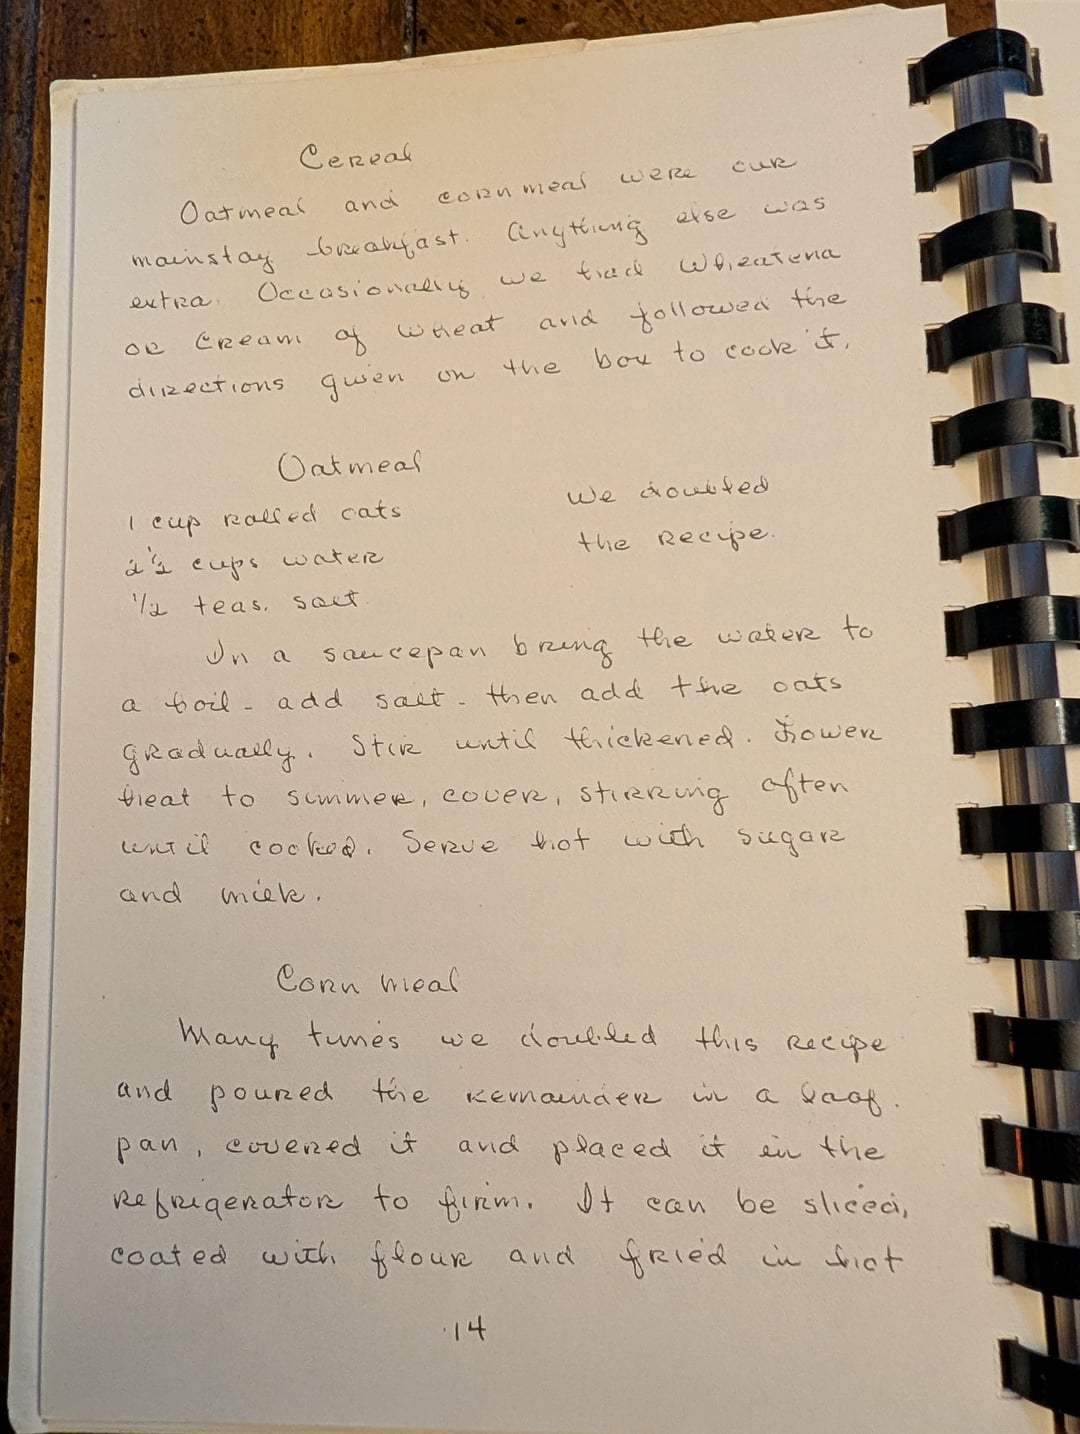 Cereal
Oatmeal and corn meal were our
mainstay breakfast. Anything else was
extra. Occasionally we had Wheatena
or Cream of Wheat and followed the
directions given on the box to cook it.
Oatmeal
1 cup rolled oats
2 1/2 cups water
1/2 teas. salt.
We doubled
the recipe.
In a saucepan bring the water to
a boil - add salt - then add the oats
gradually. Stir until thickened. Lower
heat to simmer, cover, stirring often
until cooked. Serve hot with sugar
and milk.
Corn meal
Many times we doubled this recipe
and poured the remainder in a loaf
pan, covered it and placed it in the
refrigerator to firm. It can be sliced,
coated with flour and fried in hot
14